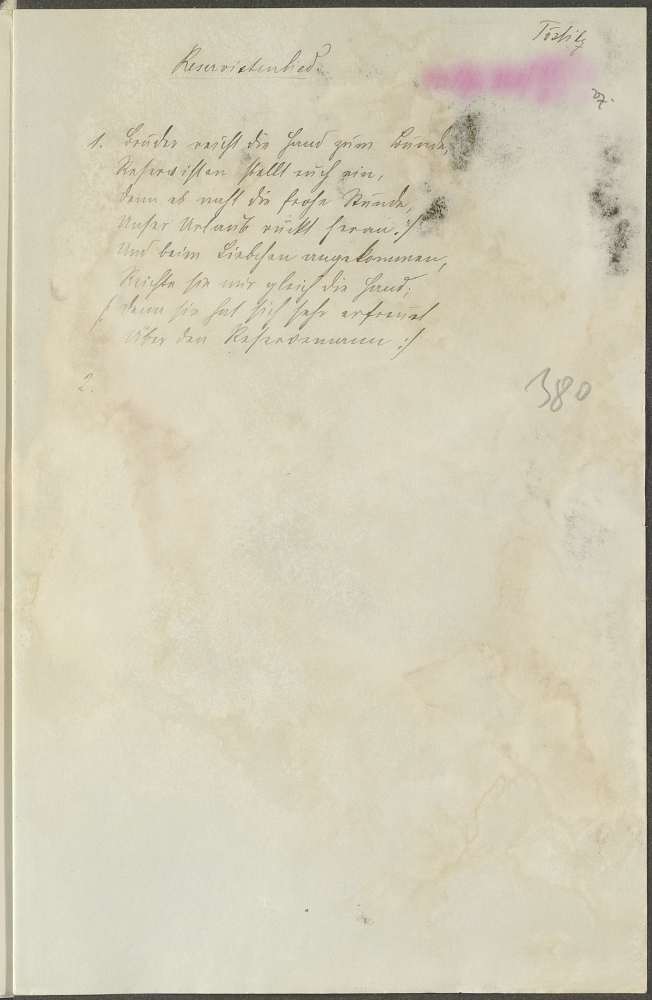 Reservistenlied.
27.
1. Brüder reicht die Hand zum Bunde,
Reservisten stellt euch ein,
Denn es naht die frohe Stunde,
Unser Urlaub rückt heran :/
Und beim Liebchen angekommen,
Reichte sie mir gleich die Hand;
/: Denn sie hat sich sehr erfreuet
Über den Reservemann :/
380
2.